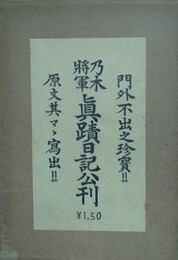 門外不出之珍寶!!
乃木將軍眞蹟日記公刊
原文其マヽ寫出!!
¥1.50